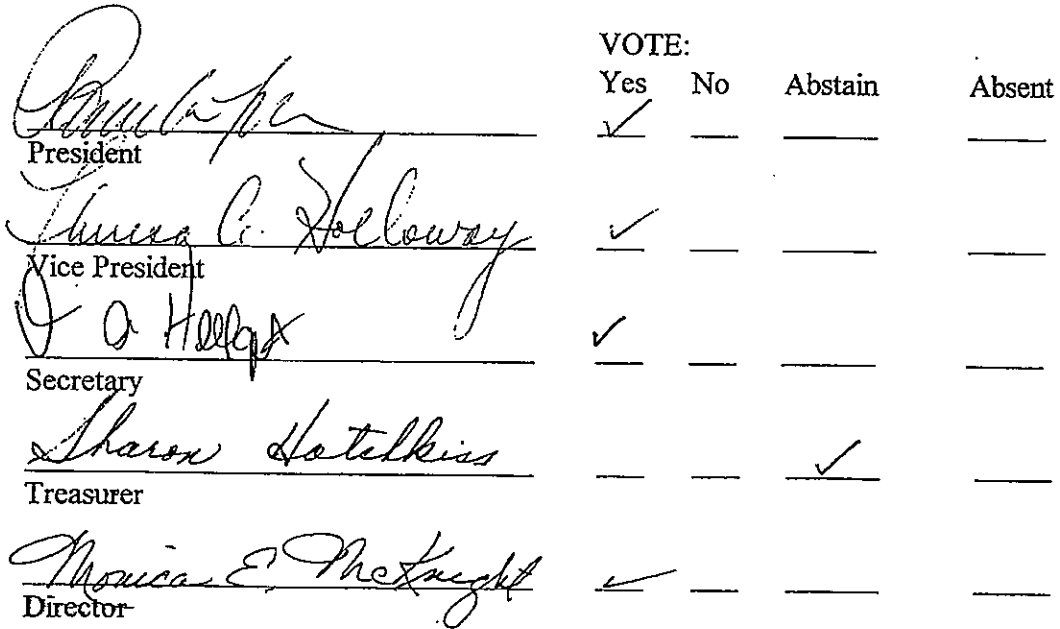 VOTE:
Yes No Abstain Absent
✓
President
Theresa C. Holloway ✓
Vice President
✓
Secretary
Sharon Hotchkiss ✓
Treasurer
Monica E. McKnight ✓
Director